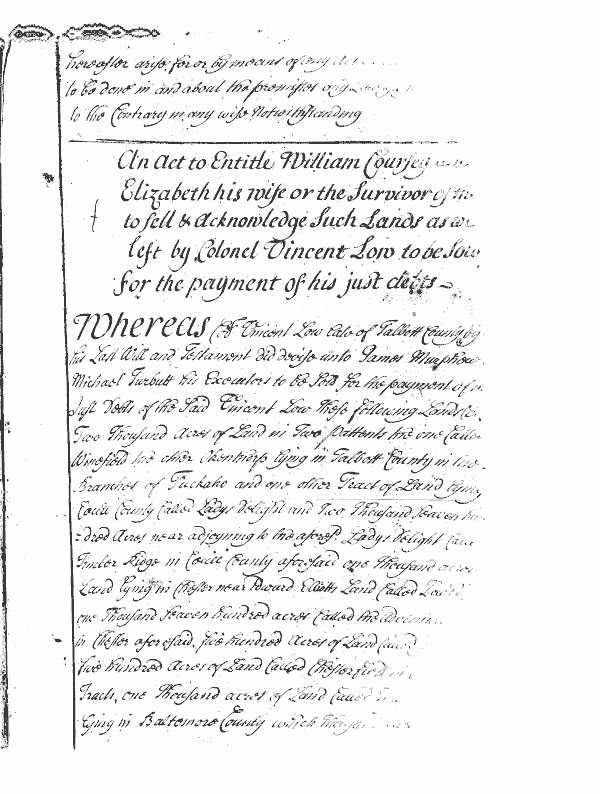 hereafter arise for or by means of any Act
to be done in and about the premisses any
to the Contrary in any wise Notwithstanding
An Act to Entitle William Coursey
Elizabeth his wife or the Survivor of
to sell & Acknowledge Such Lands as
left by Colonel Vincent Low to be Sold
for the payment of his just debts
Whereas Vincent Low late of Talbott County by
his Last Will and Testament did devise unto James Murphew
Michael Turbutt his Executors to be Sold for the payment of
Just Debts of the Said Vincent Low these following Lands
Two Thousand Acres of Land in Two pattents the one Called
Winefield the other lying in Talbott County in the
Branches of Tuckaho and one other Tract of Land lying
Cecill County Called Ladys delight and Two Thousand Seaven hun
=dred Acres near adjoyning to the afores.d Ladys delight
Timber Ridge in Cecill County aforesaid one Thousand acres
Land lying in Chester near Edward Elliotts Land Called
one Thousand Seaven hundred acres Called the Adventure
in Chester aforesaid, five hundred Acres of Land
five hundred Acres of Land Called Chesterfield
Tracts, one Thousand acres of Land Called
lying in Baltemore County which